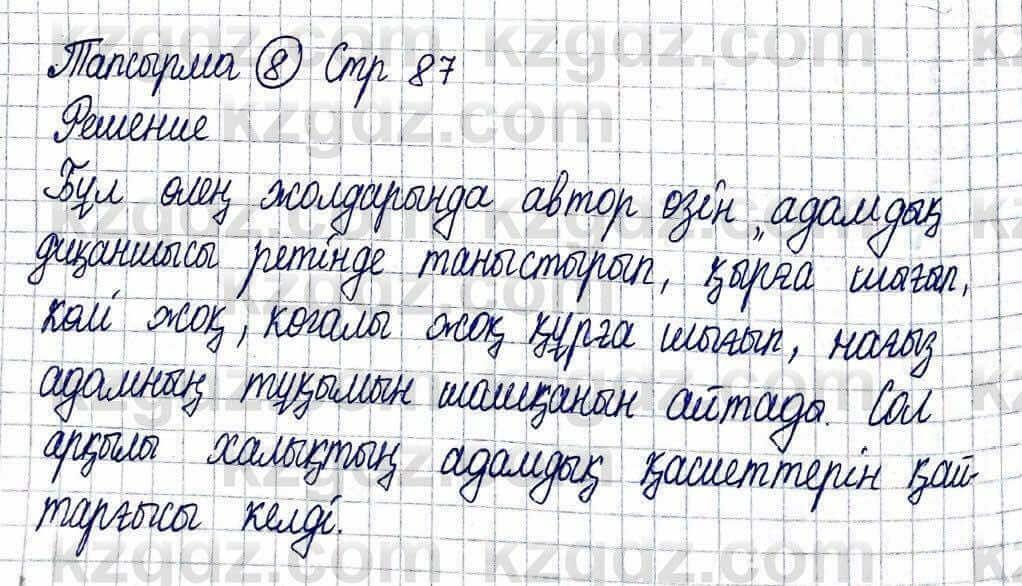 Тапсырма 8 Стр 87
Решение
Бұл өлең жолдарында автор өзін „адамдық
диқаншысы ретінде таныстырып, қырға шығып,
көлі жоқ, когалы жоқ құрға шығып, нағыз
адамның тұқымын шашқанын айтады. Сол
арқылы халықтың адамдық қасиеттерін қай-
тарғысы келді.